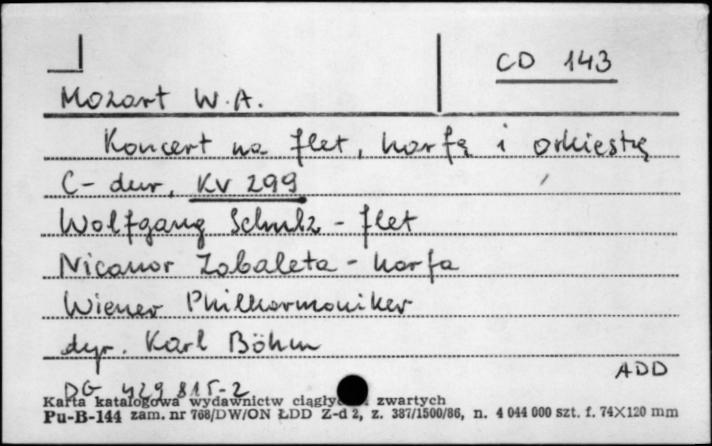 CD 143
Mozart W.A.
Koncert na flet, harfę i orkiestrę
C-dur, KV 299
Wolfgang Schulz - flet
Nicanor Zabaleta - harfa
Wiener Philharmoniker
dyr. Karl Böhm
ADD
DG 429 815-2
Karta katalogowa wydawnictw ciągłych zwartych
Pu-B-144 zam. nr 768/DW/ON ŁDD Z-d 2, z. 387/1500/86, n. 4 044 000 szt. f. 74X120 mm